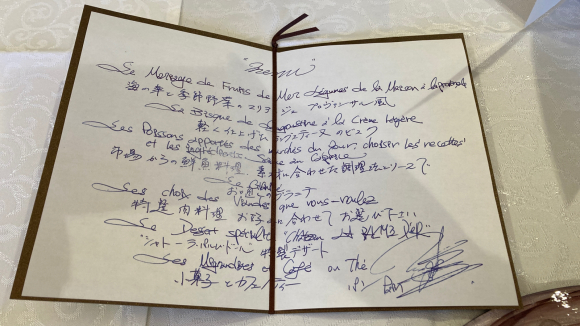 "Menu"
Le Mariage de Fruits de Mer Légumes de la Maison à la
海の幸と季節野菜のマリアージュ プロヴァンサル風
La Bisque de Langoustine à la Crème légère
軽く仕上げたラングスティーヌのビスク
Les Poissons apportés des marchés du Jour, choisir les recettes
et les ingrédients
市場からの鮮魚料理 素材に合わせた調理法とソースで
Le
お口直しのグラニテ
Les choix des Viandes que vous-voulez
特選肉料理 お好みに合わせてお選び下さい
Le Dessert spécialité "Château
"シャトーラ・パルムドール" 特製デザート
Les Mignardises et Café ou Thé
小菓子とカフェ/ティー